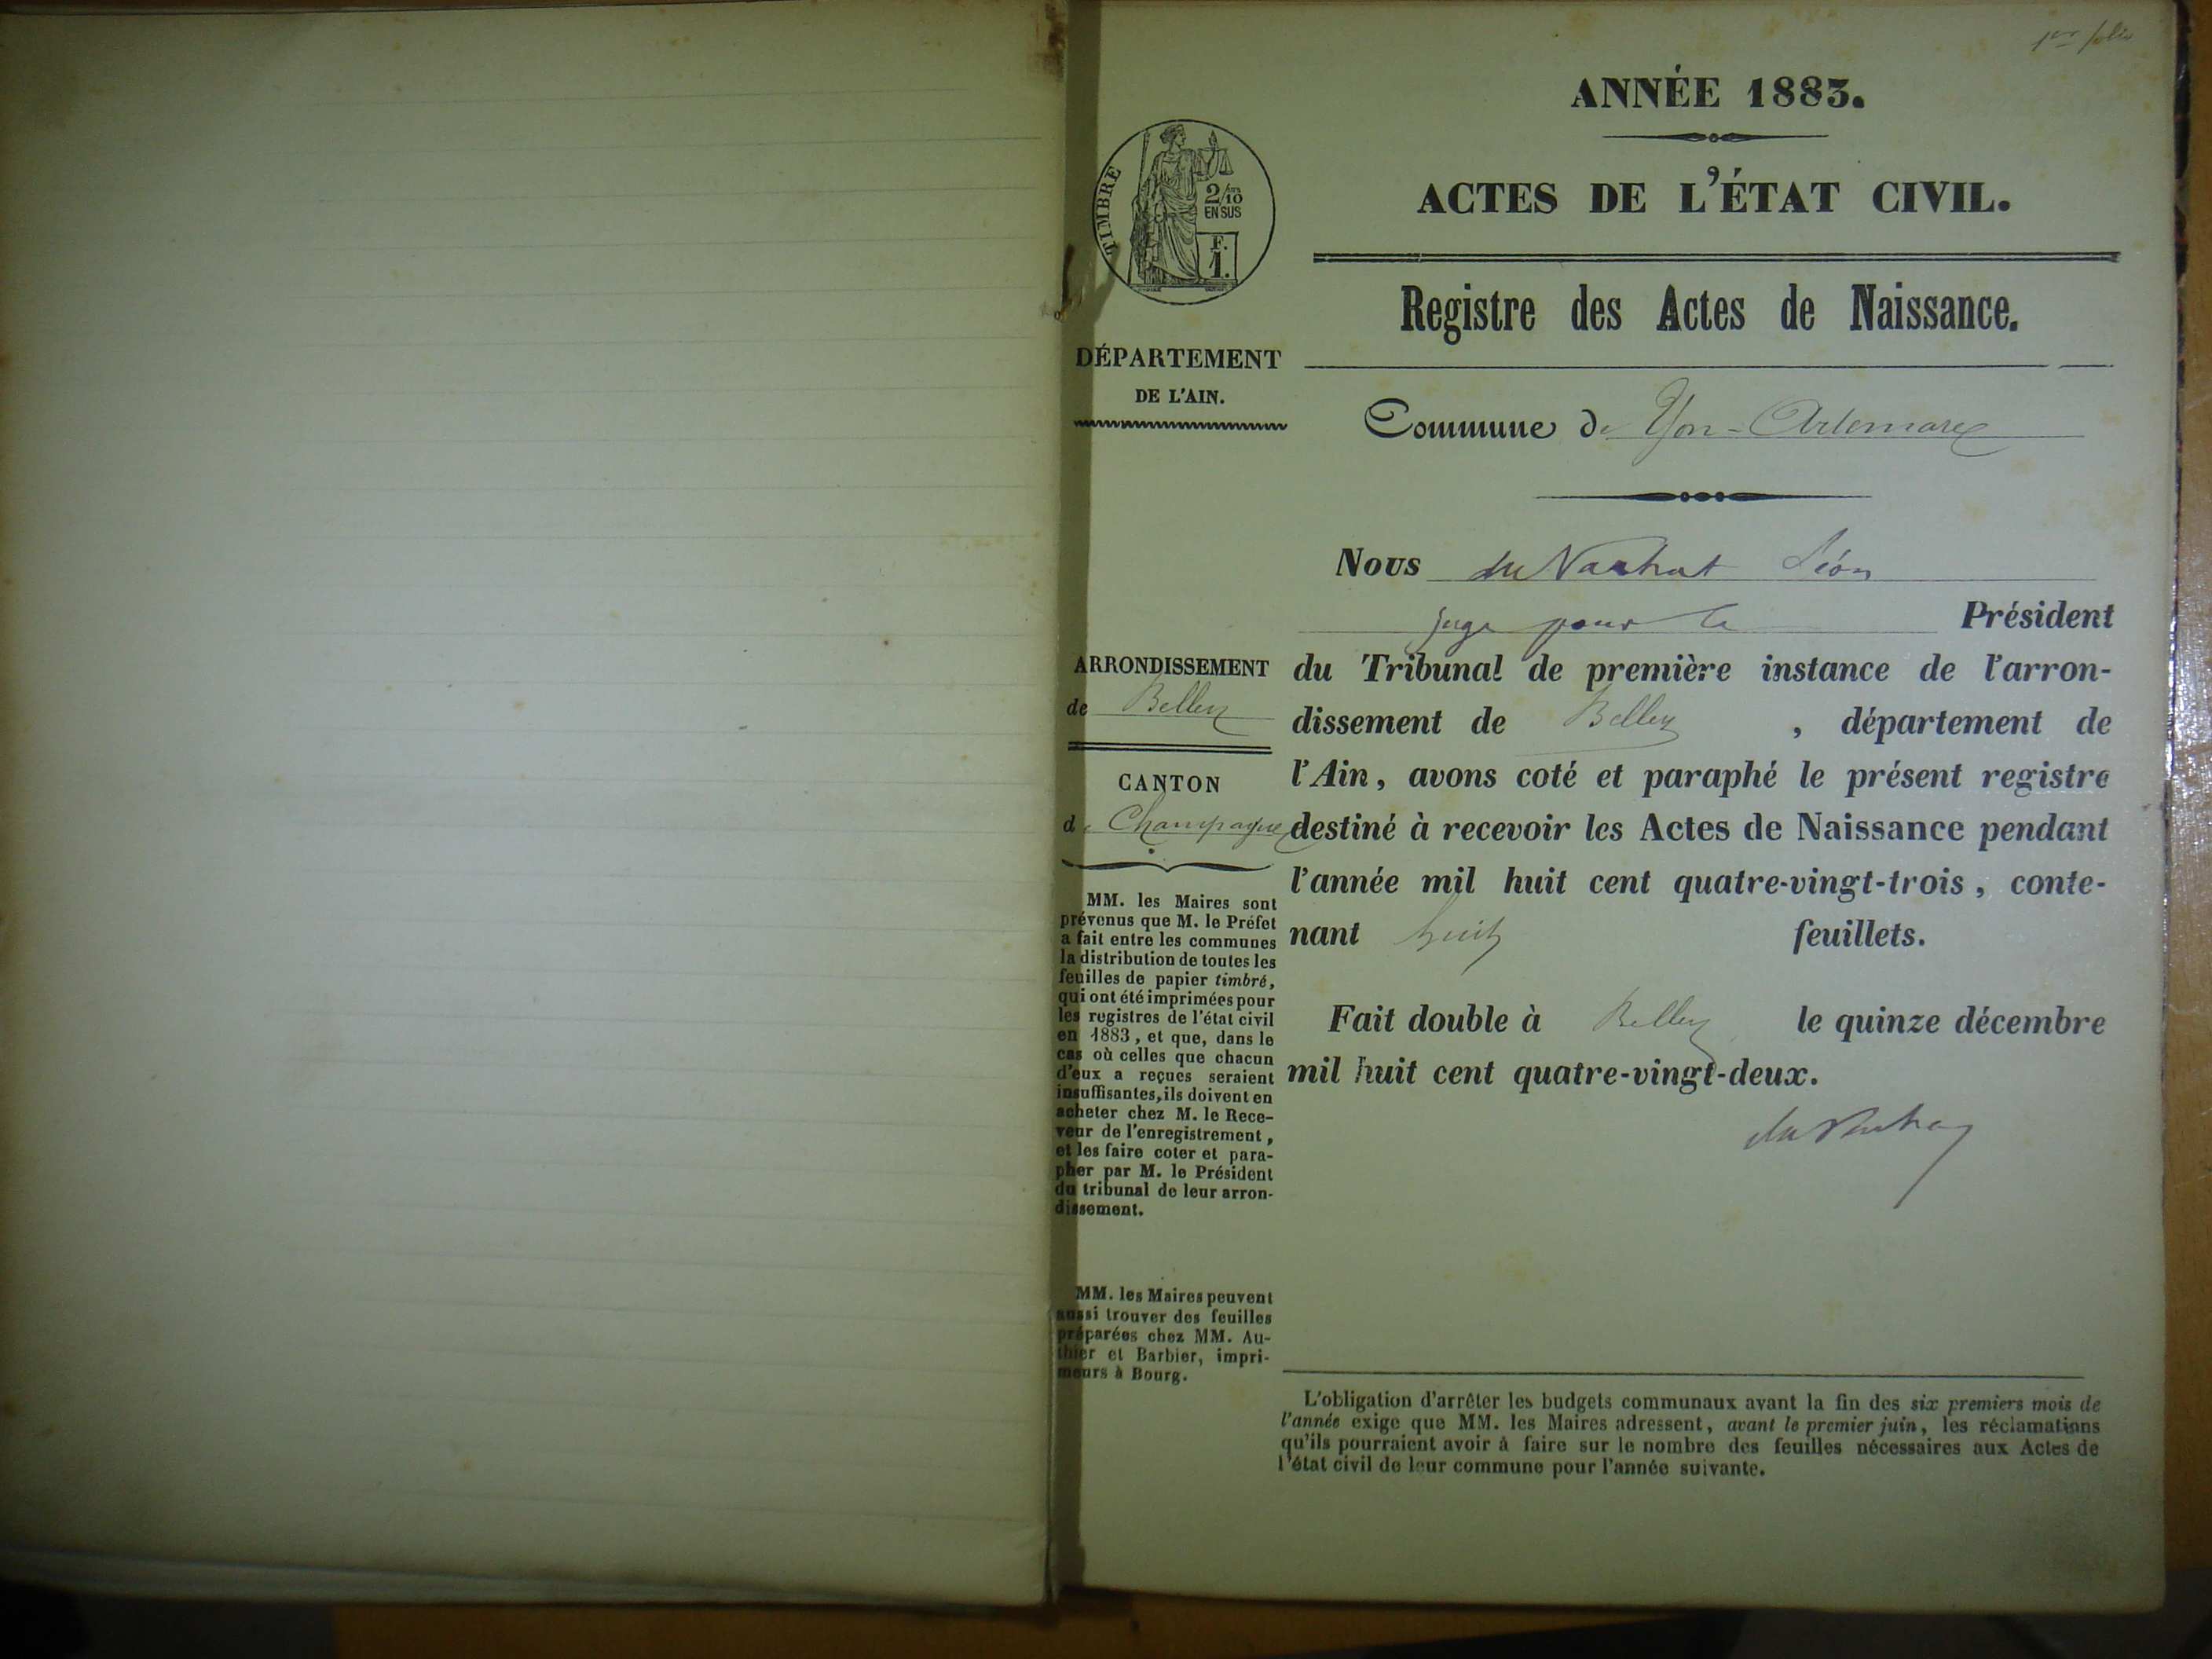 1er folio
ANNÉE 1883.
ACTES DE L'ÉTAT CIVIL.
Registre des Actes de Naissance.
TIMBRE
2/10
EN SUS
F.
1.
DÉPARTEMENT
DE L'AIN.
Commune de Yon-Artemare
Nous Léon
juge pour le Président
ARRONDISSEMENT
de Belley
du Tribunal de première instance de l'arron-
dissement de Belley , département de
l'Ain, avons coté et paraphé le présent registre
destiné à recevoir les Actes de Naissance pendant
l'année mil huit cent quatre-vingt-trois, conte-
nant huit feuillets.
Fait double à Belley le quinze décembre
mil huit cent quatre-vingt-deux.
CANTON
de Champagne
MM. les Maires sont
prévenus que M. le Préfet
a fait entre les communes
la distribution de toutes les
feuilles de papier timbré,
qui ont été imprimées pour
les registres de l'état civil
en 1883, et que, dans le
cas où celles que chacun
d'eux a reçues seraient
insuffisantes, ils doivent en
acheter chez M. le Rece-
veur de l'enregistrement,
et les faire coter et para-
pher par M. le Président
du tribunal de leur arron-
dissement.
MM. les Maires peuvent
aussi trouver des feuilles
préparées chez MM. Au-
thier et Barbier, impri-
meurs à Bourg.
L'obligation d'arrêter les budgets communaux avant la fin des six premiers mois de
l'année exige que MM. les Maires adressent, avant le premier juin, les réclamations
qu'ils pourraient avoir à faire sur le nombre des feuilles nécessaires aux Actes de
l'état civil de leur commune pour l'année suivante.